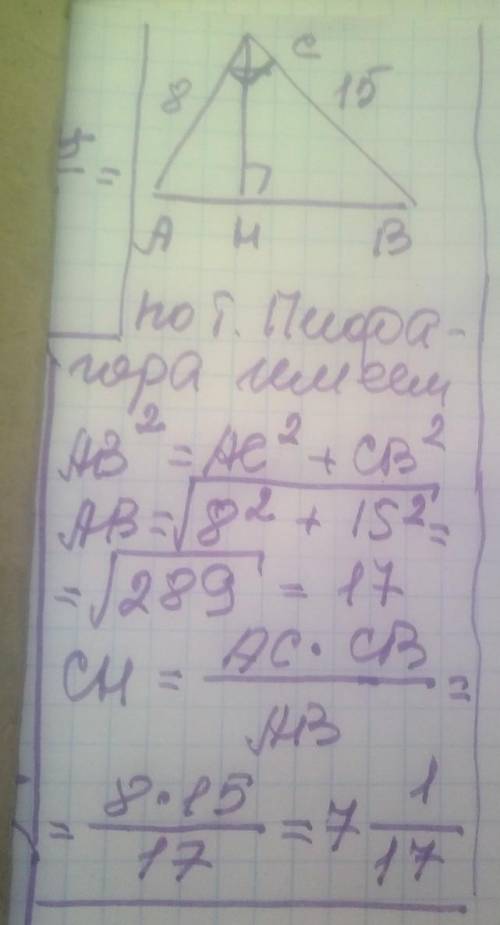 C
8 15
A H B
по т. Пифа-
гора имеем
AB² = AC² + CB²
AB = √8² + 15² =
= √289 = 17
CH = AC · CB / AB =
= 8 · 15 / 17 = 7 1/17